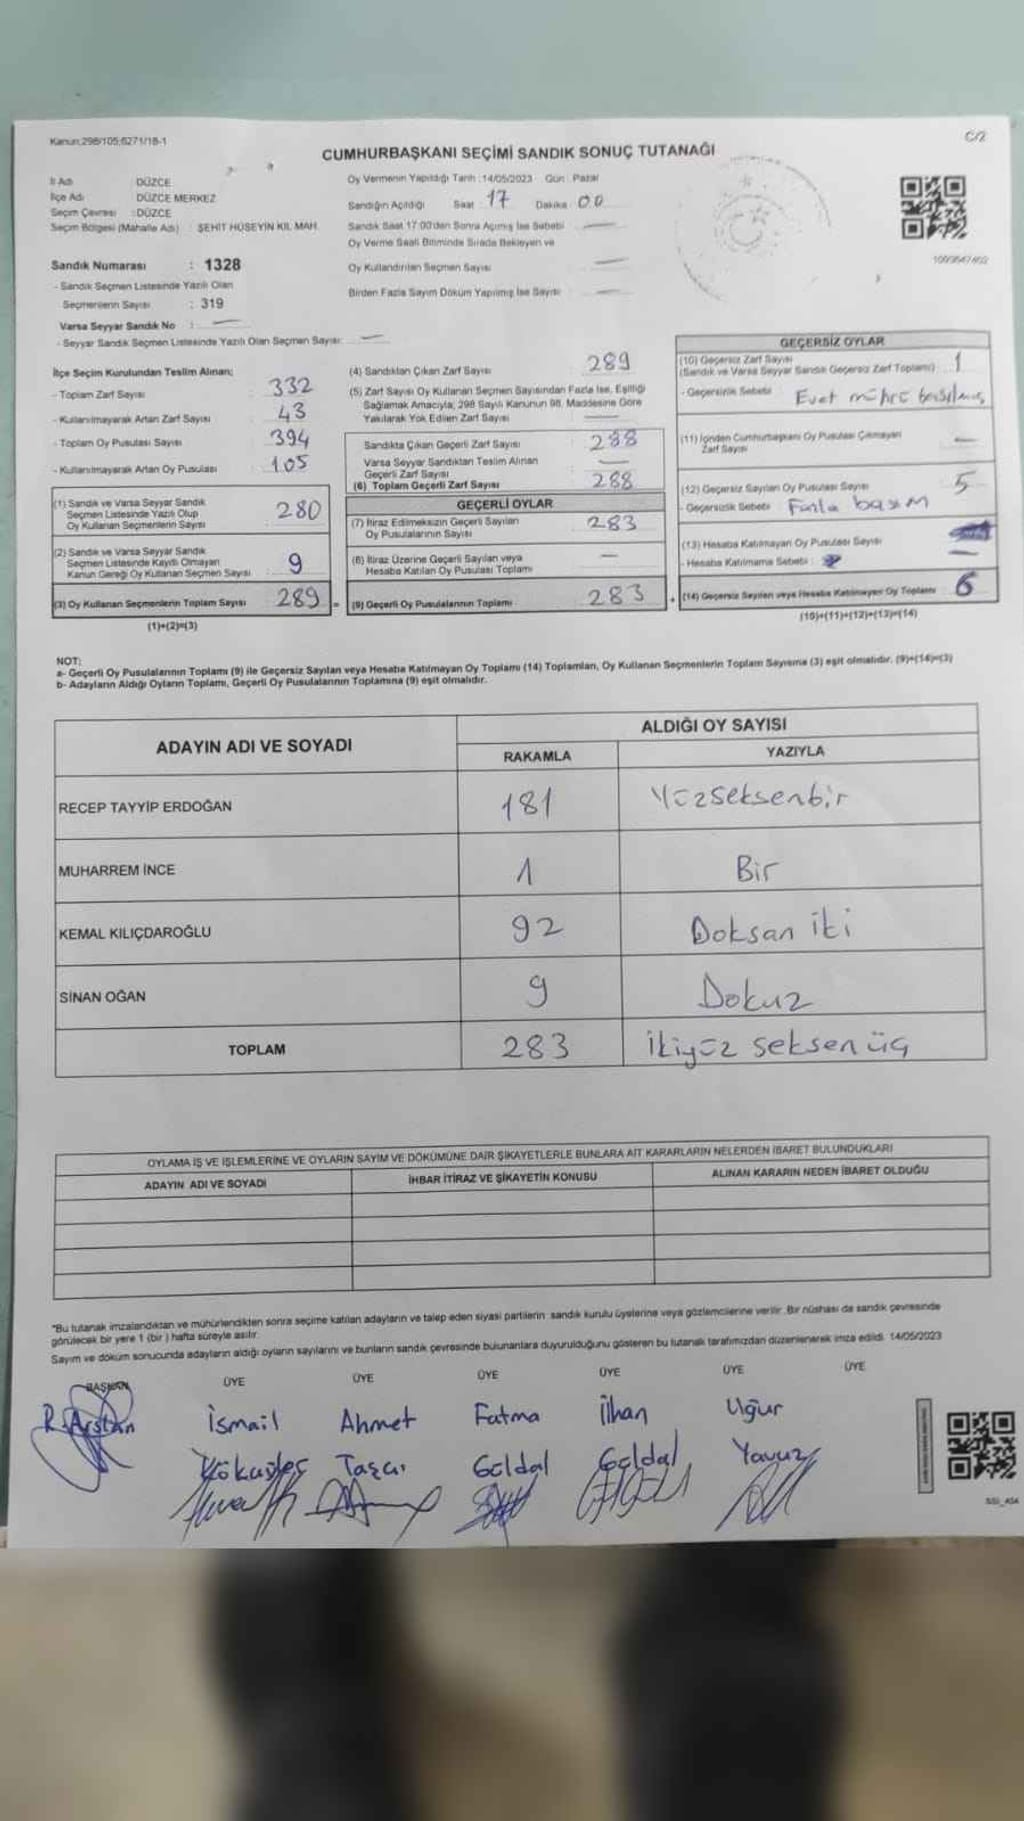 Kanun:298/105;6271/18-1
C/2
CUMHURBAŞKANI SEÇİMİ SANDIK SONUÇ TUTANAĞI
İl Adı : DÜZCE
İlçe Adı : DÜZCE MERKEZ
Seçim Çevresi : DÜZCE
Seçim Bölgesi (Mahalle Adı) : ŞEHİT HÜSEYİN KIL MAH.
Sandık Numarası : 1328
- Sandık Seçmen Listesinde Yazılı Olan
Seçmenlerin Sayısı : 319
Varsa Seyyar Sandık No : —
- Seyyar Sandık Seçmen Listesinde Yazılı Olan Seçmen Sayısı: —
Oy Vermenin Yapıldığı Tarih : 14/05/2023 Gün : Pazar
Sandığın Açıldığı Saat : 17 Dakika : 00
Sandık Saat 17:00'den Sonra Açılmış İse Sebebi —
Oy Verme Saati Bitiminde Sırada Bekleyen ve
Oy Kullandırılan Seçmen Sayısı —
Birden Fazla Sayım Döküm Yapılmış İse Sayısı : —
İlçe Seçim Kurulundan Teslim Alınan;
- Toplam Zarf Sayısı : 332
- Kullanılmayarak Artan Zarf Sayısı : 43
- Toplam Oy Pusulası Sayısı : 394
- Kullanılmayarak Artan Oy Pusulası : 105
(1) Sandık ve Varsa Seyyar Sandık
Seçmen Listesinde Yazılı Olup
Oy Kullanan Seçmenlerin Sayısı : 280
(2) Sandık ve Varsa Seyyar Sandık
Seçmen Listesinde Kayıtlı Olmayan
Kanun Gereği Oy Kullanan Seçmen Sayısı : 9
(3) Oy Kullanan Seçmenlerin Toplam Sayısı : 289 =
(1)+(2)=(3)
(4) Sandıktan Çıkan Zarf Sayısı : 289
(5) Zarf Sayısı Oy Kullanan Seçmen Sayısından Fazla İse, Eşitliği
Sağlamak Amacıyla; 298 Sayılı Kanunun 98. Maddesine Göre
Yakılarak Yok Edilen Zarf Sayısı —
Sandıkta Çıkan Geçerli Zarf Sayısı : 288
Varsa Seyyar Sandıktan Teslim Alınan
Geçerli Zarf Sayısı : —
(6) Toplam Geçerli Zarf Sayısı : 288
GEÇERLİ OYLAR
(7) İtiraz Edilmeksizin Geçerli Sayılan
Oy Pusulalarının Sayısı : 283
(8) İtiraz Üzerine Geçerli Sayılan veya
Hesaba Katılan Oy Pusulası Toplamı : —
(9) Geçerli Oy Pusulalarının Toplamı : 283 +
GEÇERSİZ OYLAR
(10) Geçersiz Zarf Sayısı
(Sandık ve Varsa Seyyar Sandık Geçersiz Zarf Toplamı) : 1
- Geçersizlik Sebebi : Evet mührü basılmış
(11) İçinden Cumhurbaşkanı Oy Pusulası Çıkmayan
Zarf Sayısı —
(12) Geçersiz Sayılan Oy Pusulası Sayısı : 5
- Geçersizlik Sebebi : Fazla basım
(13) Hesaba Katılmayan Oy Pusulası Sayısı —
- Hesaba Katılmama Sebebi :
(14) Geçersiz Sayılan veya Hesaba Katılmayan Oy Toplamı : 6
(10)+(11)+(12)+(13)=(14)
NOT:
a- Geçerli Oy Pusulalarının Toplamı (9) ile Geçersiz Sayılan veya Hesaba Katılmayan Oy Toplamı (14) Toplamları, Oy Kullanan Seçmenlerin Toplam Sayısına (3) eşit olmalıdır. (9)+(14)=(3)
b- Adayların Aldığı Oyların Toplamı, Geçerli Oy Pusulalarının Toplamına (9) eşit olmalıdır.
ADAYIN ADI VE SOYADI
ALDIĞI OY SAYISI
RAKAMLA YAZIYLA
RECEP TAYYİP ERDOĞAN 181 Yüzseksenbir
MUHARREM İNCE 1 Bir
KEMAL KILIÇDAROĞLU 92 Doksan iki
SİNAN OĞAN 9 Dokuz
TOPLAM 283 İkiyüz seksen üç
OYLAMA İŞ VE İŞLEMLERİNE VE OYLARIN SAYIM VE DÖKÜMÜNE DAİR ŞİKAYETLERLE BUNLARA AİT KARARLARIN NELERDEN İBARET BULUNDUKLARI
ADAYIN ADI VE SOYADI İHBAR İTİRAZ VE ŞİKAYETİN KONUSU ALINAN KARARIN NEDEN İBARET OLDUĞU
*Bu tutanak imzalandıktan ve mühürlendikten sonra seçime katılan adayların ve talep eden siyasi partilerin sandık kurulu üyelerine veya gözlemcilerine verilir. Bir nüshası da sandık çevresinde
görülecek bir yere 1 (bir ) hafta süreyle asılır.
Sayım ve döküm sonucunda adayların aldığı oyların sayılarını ve bunların sandık çevresinde bulunanlara duyurulduğunu gösteren bu tutanak tarafımızdan düzenlenerek imza edildi. 14/05/2023
BAŞKAN ÜYE ÜYE ÜYE ÜYE ÜYE ÜYE
R. Arslan İsmail Ahmet Fatma İlhan Uğur
Taşcı Güldal Güldal Yavuz